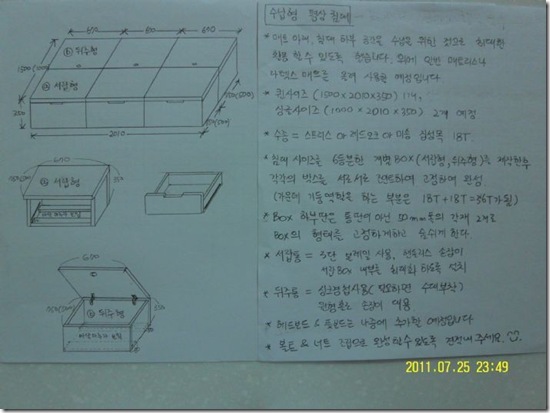 670 670 670
ⓑ 뒤주형
ⓐ 서랍형
1500(1000)
350
2010
670
ⓐ 서랍형
350
670
ⓑ 뒤주형
수납형 평상 침대
* 매트 아래, 침대 하부 공간을 수납을 위한 것으로 최대한
활용할 수 있도록 했습니다. 위에 일반 매트리스나
라텍스 매트를 올려 사용할 예정입니다.
* 퀸사이즈 (1500×2010×350) 1개,
싱글사이즈 (1000×2010×350) 2개 예정
* 수종 = 스프러스 or 레드오크 or 미송 집성목 18T.
* 침대 사이즈를 6등분한 개별 BOX (서랍형, 뒤주형)을 제작한후
각각의 박스를 서로서로 고정하여 완성
(가운데 기둥역할을 하는 부분은 18T+18T=36T가 됨)
* BOX 하부판은 통판이 아닌 50mm폭의 각재 2개로
BOX의 형태를 고정하게하고 숨쉬게 한다.
* 서랍형 = 3단 볼레일 사용, 손잡이
서랍 BOX 내부를 최대화 하도록 설치
* 뒤주형 = 싱크경첩사용 (필요하면 수대부착)
원형홀로 손잡이 대용
* 헤드보드 & 풋보드는 나중에 추가할 예정입니다
* 볼트 & 너트 조립으로 완성할 수 있도록 해주세요.
2011.07.25 23:49